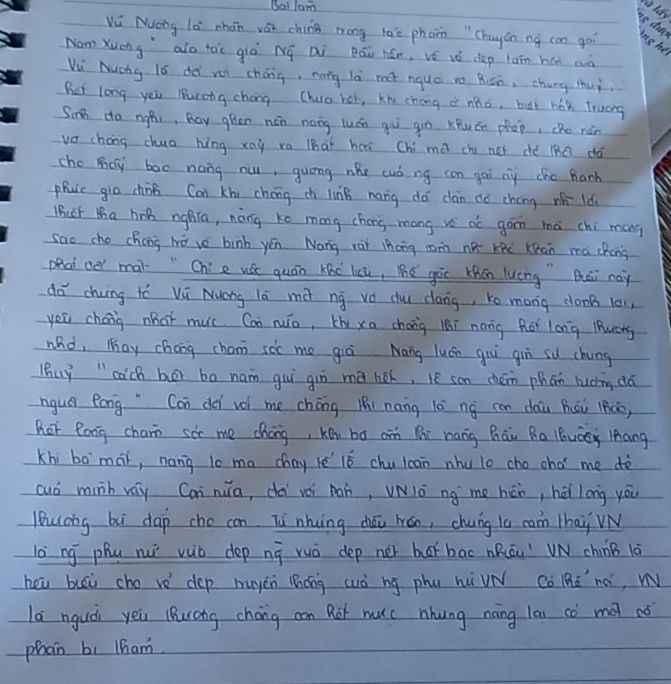 Bài làm
Vũ Nương là nhân vật chính trong tác phẩm "Chuyện ng con gái
Nam Xương" của tác giả Ng Dữ. Đầu tiên, về vẻ đẹp tâm hồn của
Vũ Nương là đối với chồng, nàng là một người vợ hiền, chung thuỷ,
hết lòng yêu thương chồng. Chưa hết, khi chồng ở nhà, biết tính Trương
Sinh đa nghi, hay ghen nên nàng luôn giữ gìn khuôn phép, cho nên
vợ chồng chưa từng xảy ra thất hoà. Chỉ mà chi nét để thế đã
cho thấy bao nàng niu, gương nhẹ của ng con gái ấy cho hạnh
phúc gia đình. Còn khi chồng đi lính nàng đã dặn dò chồng những lời
thiết tha tình nghĩa, nàng ko mong chồng mang về áo gấm mà chỉ mong
sao cho chồng trở về bình yên. Nàng rất thông cảm nỗi khó khăn mà chồng
phải đối mặt "Chỉ e việc quân khó liệu, thế giặc khôn lường". Điều này
đã chứng tỏ Vũ Nương là một ng vợ dịu dàng, ko màng danh lợi,
yêu chồng nhất mực. Còn nữa, khi xa chồng thì nàng hết lòng thương
nhớ, thay chồng chăm sóc mẹ già. Nàng luôn giữ gìn sự chung
thuỷ "cách biệt ba năm giữ gìn một tiết, tô son điểm phấn từng đã
nguôi lòng". Còn đối với mẹ chồng thì nàng là ng con dâu hiếu thảo,
hết lòng chăm sóc mẹ chồng, khi bà ốm thì nàng hầu hạ thuốc thang
Khi bà mất, nàng lo ma chay tế lễ chu toàn như lo cho cha mẹ đẻ
của mình vậy. Còn nữa, đối với con, VN là ng mẹ hiền, hết lòng yêu
thương bù đắp cho con. Từ những điều trên, chúng ta cảm thấy VN
là ng phụ nữ vừa đẹp ng vừa đẹp nết biết bao nhiêu! VN chính là
tiêu biểu cho vẻ đẹp truyền thống của ng phụ nữ VN. Có thể nói, VN
là người yêu thương chồng con hết mực nhưng nàng lại có một số
phận bi thảm.